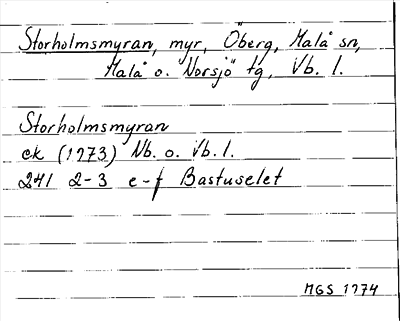 Storholmsmyran, myr, Öberg, Malå sn,
Malå o. Norsjö tg, Vb. l.
Storholmsmyran
ek (1973) Nb. o. Vb. l.
241 2-3 e-f Bastuselet
MGS 1974